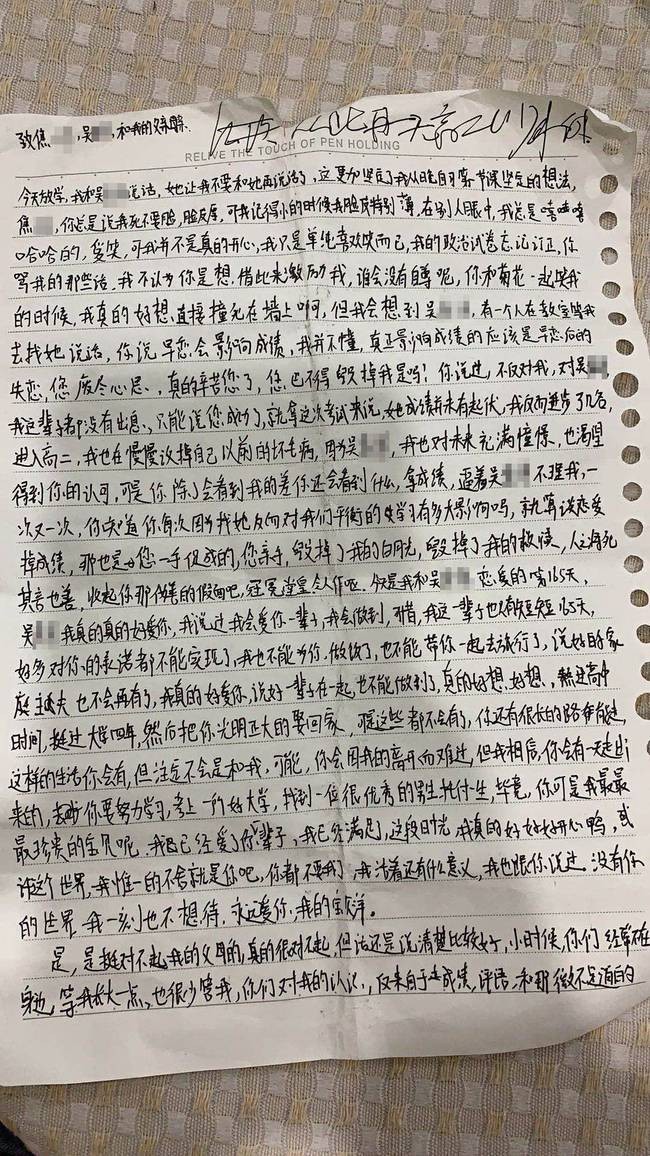 致焦 , 吴 , 和我的父亲母亲.
RELIVE THE TOUCH OF PEN HOLDING
今天放学, 我和吴 说话, 她让我不要和她再说话了, 这更加坚定了我从晚自习第一节课坚定的想法,
焦 , 你总是说我死不要脸, 脸皮厚, 可我记得小的时候我脸皮特别薄, 在别人眼中, 我总是嘻嘻嘻
哈哈哈的, 爱笑, 可我并不是真的开心, 我只是单纯喜欢笑而已, 我的政治试卷忘记订正, 你
骂我的那些话, 我不认为你是想借此来激励我, 谁会没有自尊呢, 你和菊花一起笑我
的时候, 我真的好想直接撞死在墙上啊, 但我会想到吴 , 有一个人在教室等我
去找她说话, 你说早恋会影响成绩, 我并不懂, 真正影响成绩的应该是早恋后的
失恋, 您废尽心思, 真的辛苦您了, 您巴不得毁掉我是吗! 你说过, 不仅对我, 对吴
我这辈子都没有出息, 只能说您成功了, 就拿这次考试来说, 她成绩并未有起伏, 我反而进步了几名,
进入高二, 我也在慢慢改掉自己以前的坏毛病, 因为吴 , 我也对未来充满憧憬, 也渴望
得到你的认可, 可是你除了会看到我的差你还会看到什么, 拿成绩, 逼着吴 不理我, 一
次又一次, 你知道你每次因为找她反而对我们平衡的 学习有多大影响吗, 就算谈恋爱
掉成绩, 那也是 您一手促成的, 您亲手毁掉了我的白月光, 毁掉了我的 , 人之将死
其言也善, 收起你那 的假面吧, 冠冕堂皇令人作呕. 今天是我和吴 恋爱的第165天,
吴 我真的真的好爱你, 我说过我会爱你一辈子, 我会做到, 可惜, 我这一辈子也只有短短165天,
好多对你的承诺都不能实现了, 我也不能为你做饭了, 也不能带你一起去旅行了, 说好的家
庭主夫也不会再有了, 我真的好爱你, 说好一辈子在一起, 也不能做到了, 真的好想, 好想, 熬过高中
时间, 挺过大学四年, 然后把你光明正大的娶回家, 喔这些都不会有了, 你还有很长的路要走,
这样的生活你会有, 但注定不会是和我, 可能, 你会因我的离开而难过, 但我相信, 你会有一天走出
来的, 你要努力学习, 考上一所好大学, 找到一位很优秀的男生托付一生, 毕竟, 你可是我最最
最珍贵的宝贝呢, 我已经爱了你一辈子, 我已经满足, 这段日子, 我真的好好好开心鸭, 或
许这个世界, 我惟一的不舍就是你吧, 你都不要我了, 我活着还有什么意义, 我也跟你说过, 没有你
的世界, 我一刻也不想待, 永远爱你, 我的宝 .
是, 是挺对不起我的父母的, 真的很对不起, 但话还是说清楚比较好, 小时候, 你们经常不在
身边, 等我长大一点, 也很少管我, 你们对我的认识, 仅来自于 成绩, 评语, 和那微不足道的